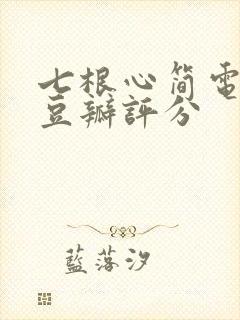 七根心简電
豆瓣評分
藍落汐